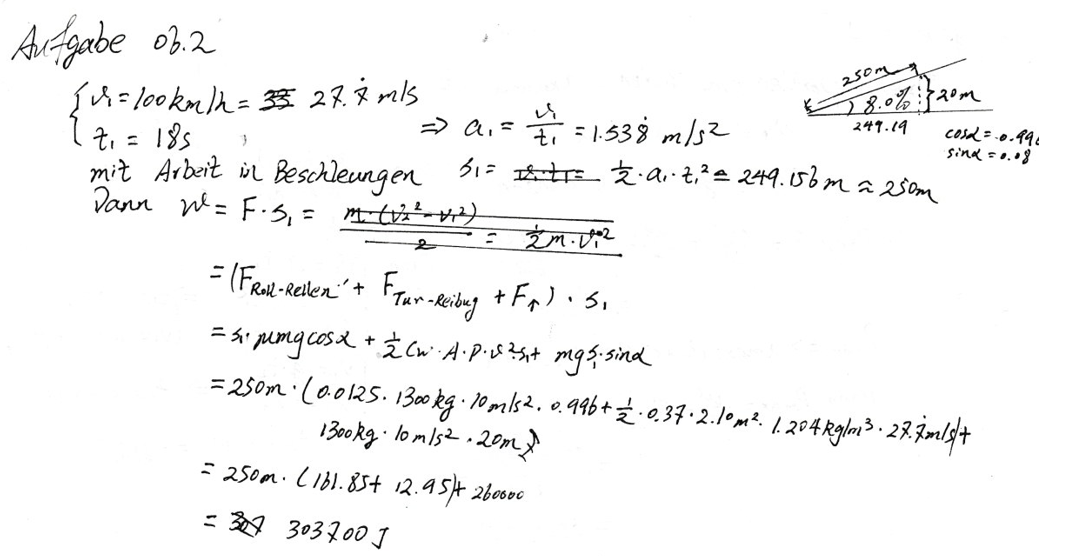 Aufgabe 03.2
{ v₁ = 100km/h = 27.7̇ m/s
{ t₁ = 18s
⇒ a₁ = v₁/t₁ = 1.538̇ m/s²
250m
8.0%
20m
249.19
cosα = 0.996
sinα = 0.08
mit Arbeit in Beschleungen s₁ = ½ · a₁ · t₁² = 249.156m ≈ 250m
Dann W = F · s₁ = m·(v₂² - v₁²)/2 = ½m·v₁²
= (F_Roll-Reiben + F_Tur-Reibug + F↑) · s₁
= s₁ · μmg cosα + ½ Cw · A · ρ · v² s₁ + mg s₁ · sinα
= 250m · (0.0125 · 1300kg · 10m/s² · 0.996 + ½ · 0.37 · 2.10m² · 1.204kg/m³ · 27.7̇m/s) +
1300kg · 10m/s² · 20m
= 250m · (161.85 + 12.95) + 260000
= 303700 J